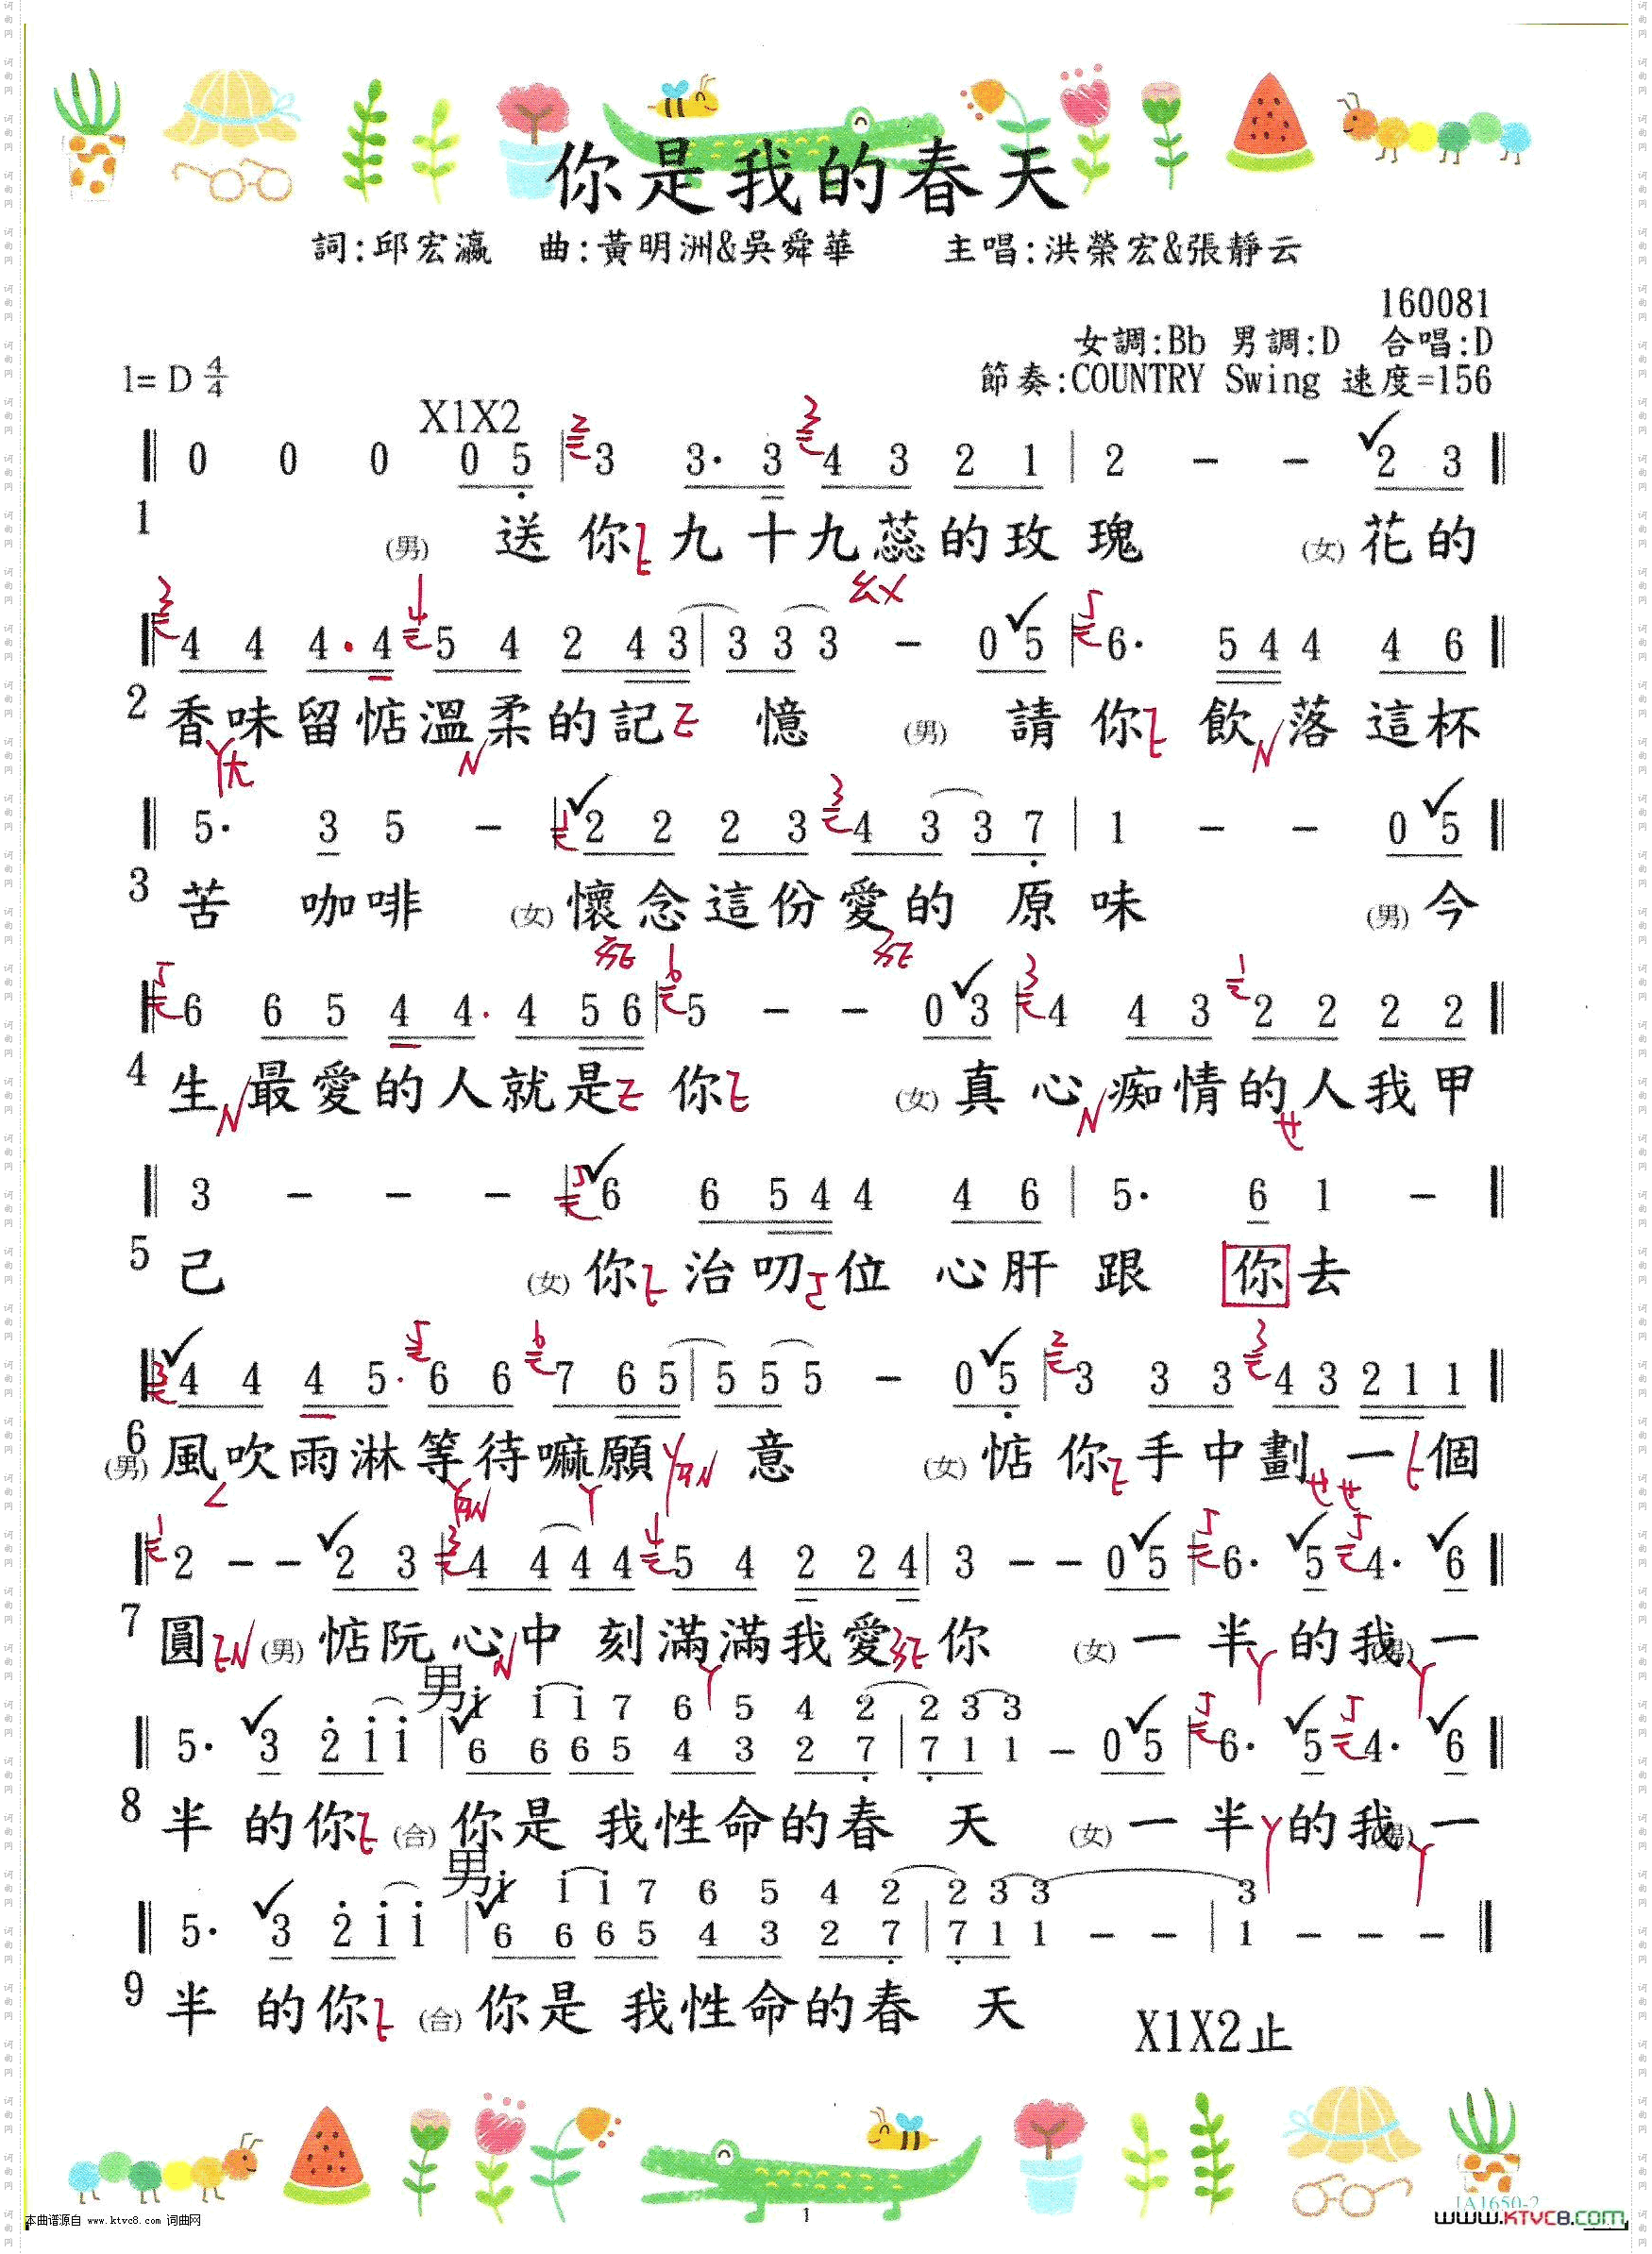 你是我的春天
詞:邱宏瀛 曲:黃明洲&吳舜華 主唱:洪榮宏&張靜云
160081
女調:Bb 男調:D 合唱:D
1= D 4/4 節奏:COUNTRY Swing 速度=156
X1X2
0 0 0 0 5 | 3 3· 3 4 3 2 1 | 2 - - 2 3
1 (男) 送你九十九蕊的玫瑰 (女) 花的
4 4 4·4 5 4 2 4 3 | 3 3 3 - 0 5 | 6· 5 4 4 4 6
2 香味留惦溫柔的記憶 (男) 請你飲落這杯
5· 3 5 - | 2 2 2 3 4 3 3 7 | 1 - - 0 5
3 苦咖啡 (女) 懷念這份愛的原味 (男) 今
6 6 5 4 4· 4 5 6 | 5 - - 0 3 | 4 4 3 2 2 2 2
4 生最愛的人就是你 (女) 真心痴情的人我甲
3 - - - | 6 6 5 4 4 4 6 | 5· 6 1 -
5 己 (女) 你治叨位心肝跟你去
4 4 4 5· 6 6 7 6 5 | 5 5 5 - 0 5 | 3 3 3 4 3 2 1 1
6 (男) 風吹雨淋等待嘛願意 (女) 惦你手中劃一個
2 - - 2 3 | 4 4 4 4 5 4 2 2 4 | 3 - - 0 5 | 6· 5 4· 6
7 圓 (男) 惦阮心中刻滿滿我愛你 (女) 一半的我 (男) 一
男 i i i 7 6 5 4 2 2 3 3
5· 3 2 i i | 6 6 6 5 4 3 2 7 | 7 1 1 - 0 5 | 6· 5 4· 6
8 半的你 (合) 你是我性命的春天 (女) 一半的我 (男) 一
男 i i i 7 6 5 4 2 2 3 3 3
5· 3 2 i i | 6 6 6 5 4 3 2 7 | 7 1 1 - - | 1 - - -
9 半的你 (合) 你是我性命的春天
X1X2止
1
JA1650-2
本曲谱源自 www.ktvc8.com 词曲网
www.KTVC8.COM